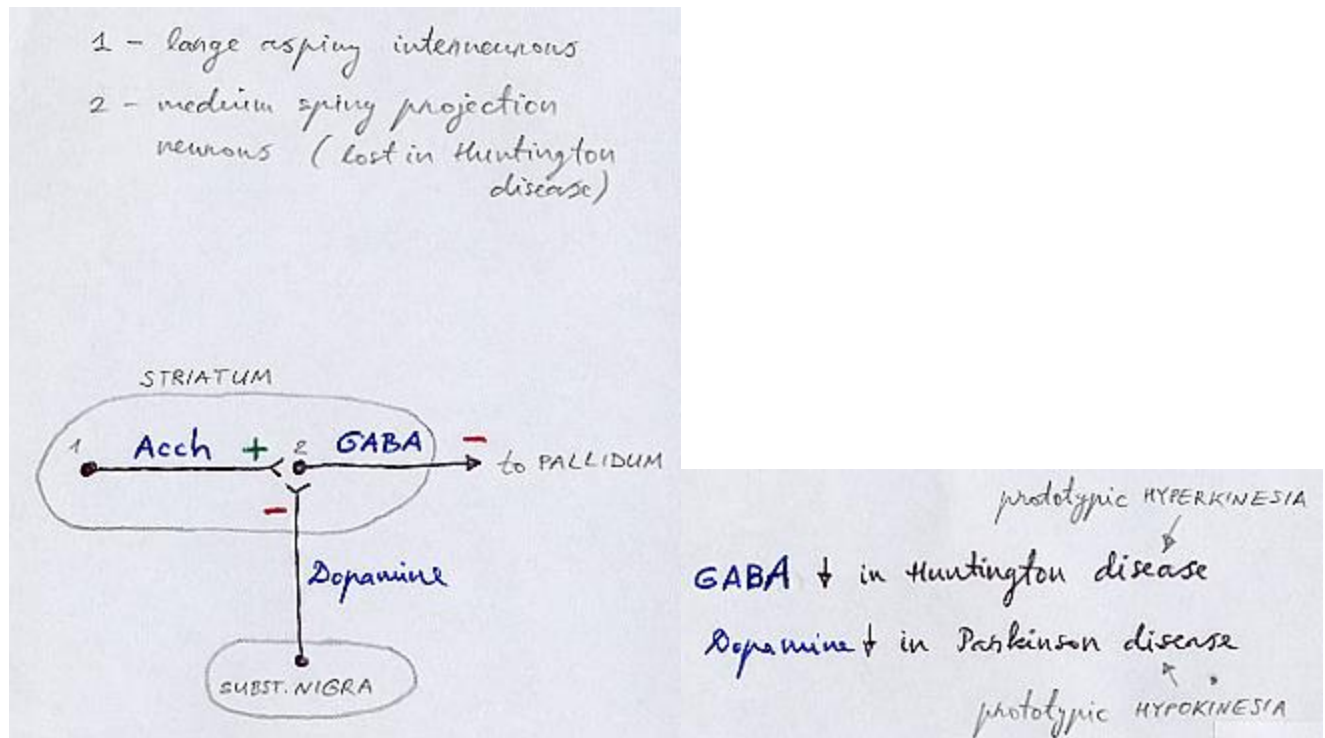 1 - large aspiny interneurons
2 - medium spiny projection
neurons (lost in Huntington
disease)
STRIATUM
1 Acch + 2 GABA -
to PALLIDUM
-
Dopamine
SUBST. NIGRA
prototypic HYPERKINESIA
GABA ↓ in Huntington disease
Dopamine ↓ in Parkinson disease
prototypic HYPOKINESIA